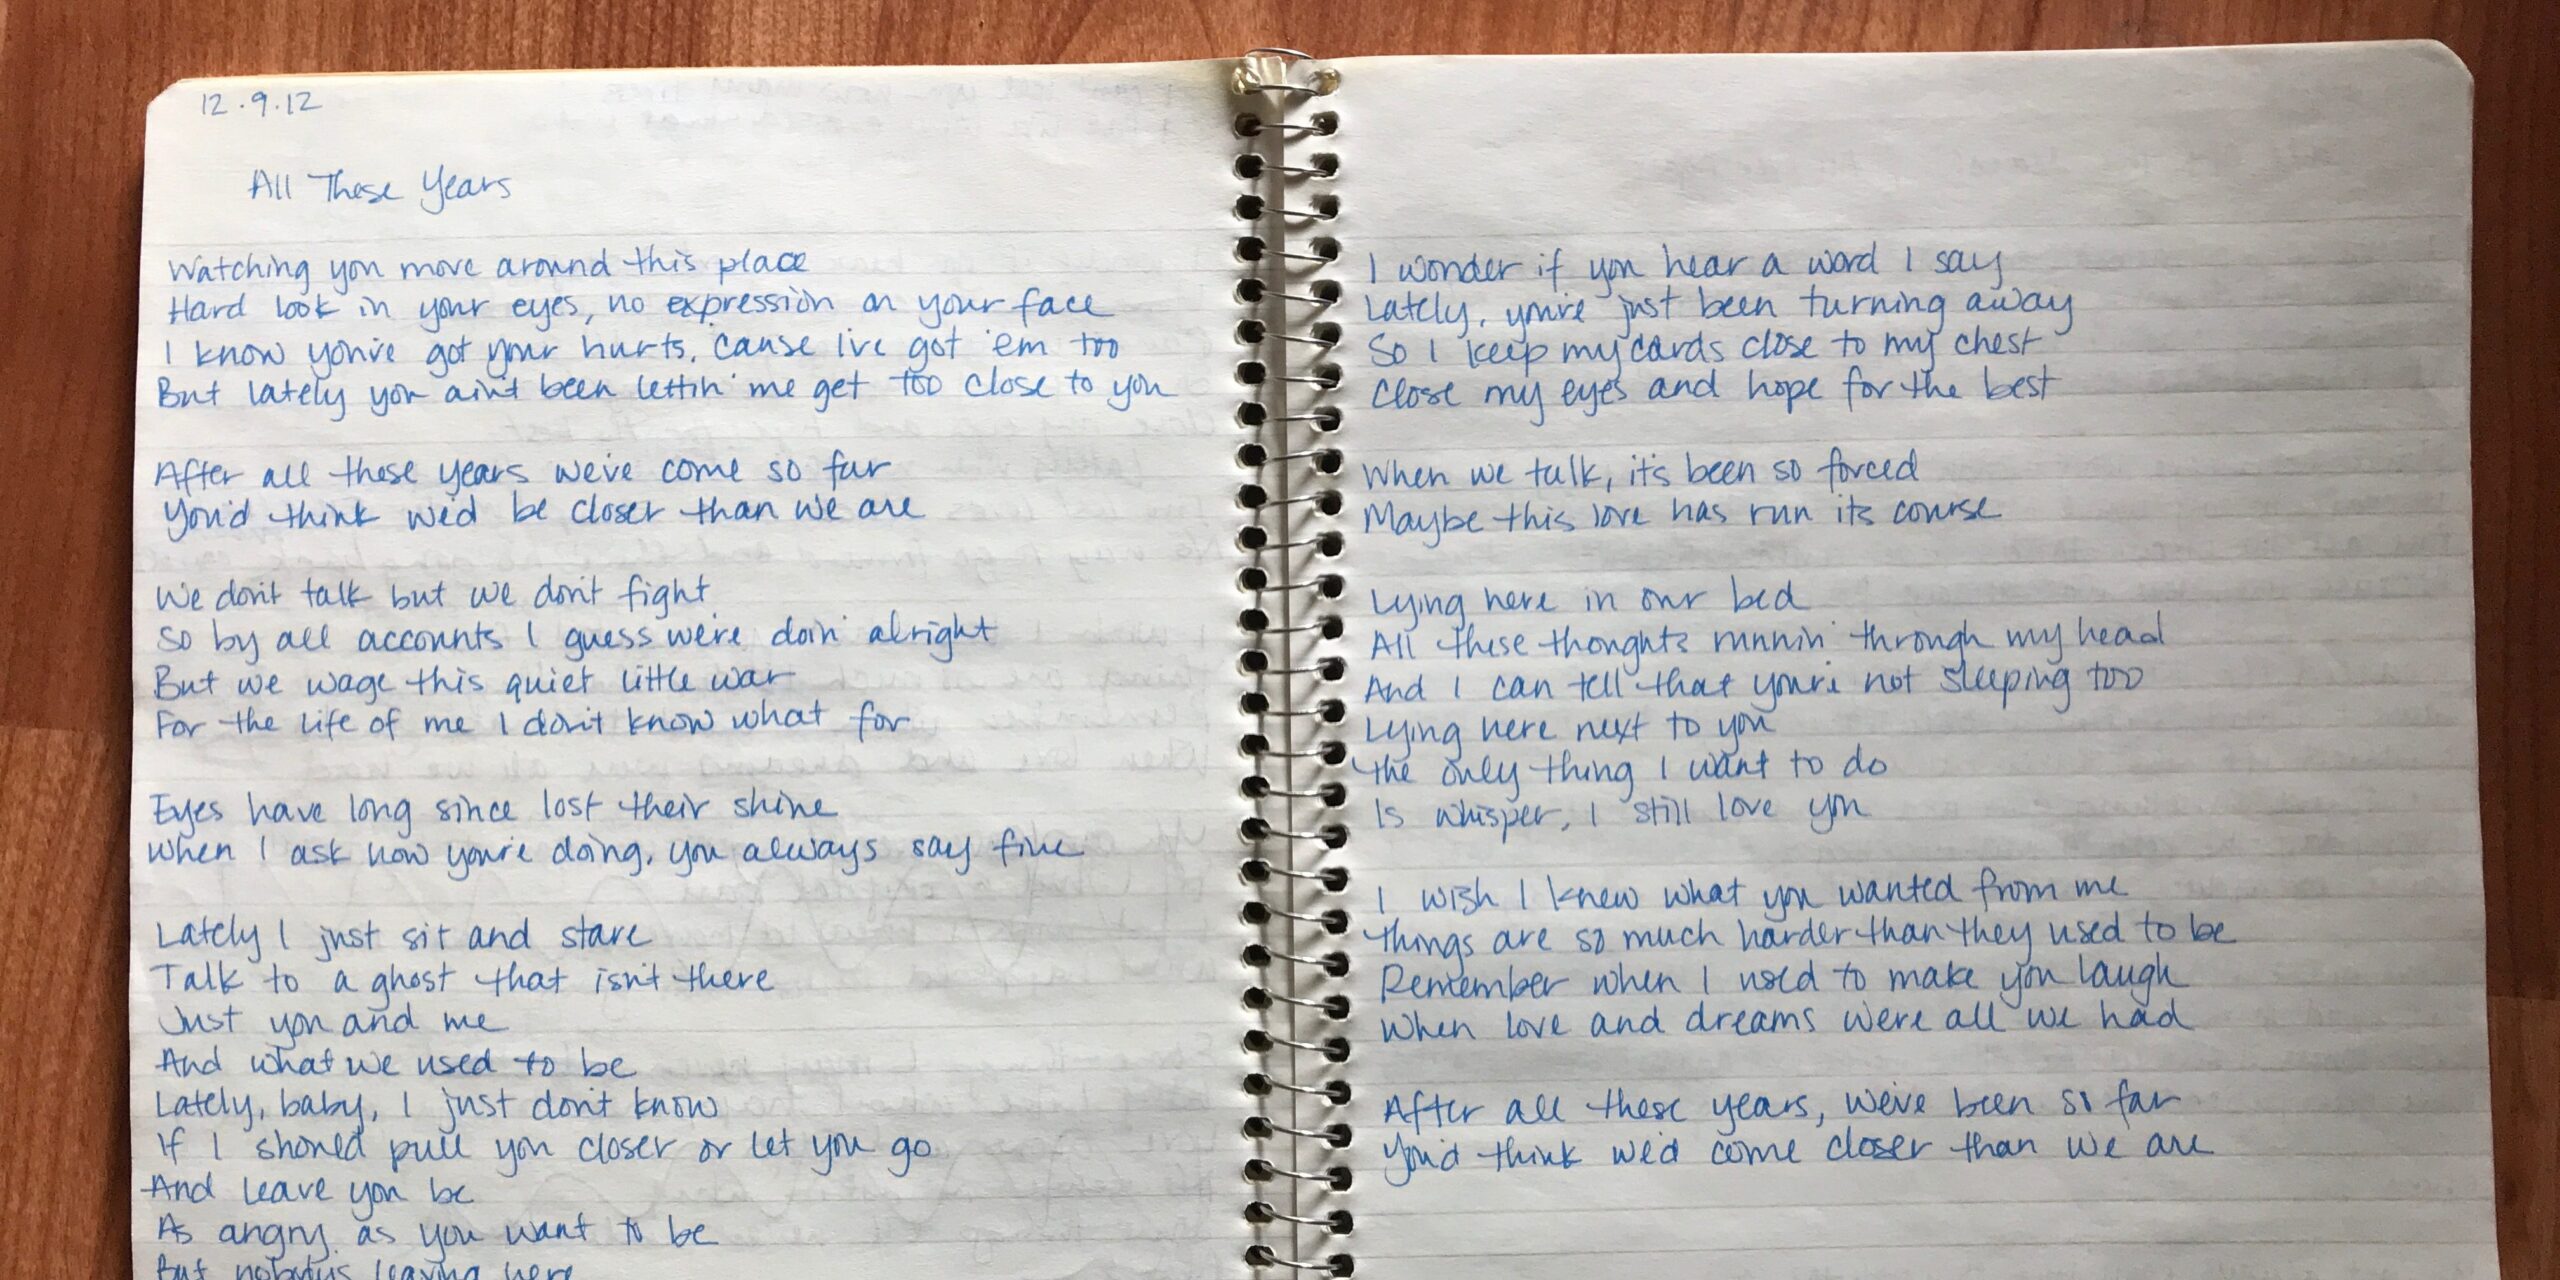 12.9.12
All These Years
Watching you move around this place
Hard look in your eyes, no expression on your face
I know you've got your hurts, 'cause I've got 'em too
But lately you ain't been lettin' me get too close to you
After all these years we've come so far
You'd think we'd be closer than we are
We don't talk but we don't fight
So by all accounts I guess we're doin' alright
But we wage this quiet little war
For the life of me I don't know what for
Eyes have long since lost their shine
When I ask how you're doing, you always say fine
Lately I just sit and stare
Talk to a ghost that isn't there
Just you and me
And what we used to be
Lately, baby, I just don't know
If I should pull you closer or let you go
And leave you be
As angry as you want to be
But nobody's leaving here
I wonder if you hear a word I say
Lately, you've just been turning away
So I keep my cards close to my chest
Close my eyes and hope for the best
When we talk, it's been so forced
Maybe this love has run its course
Lying here in our bed
All these thoughts runnin' through my head
And I can tell that you're not sleeping too
Lying here next to you
The only thing I want to do
Is whisper, I still love you
I wish I knew what you wanted from me
Things are so much harder than they used to be
Remember when I used to make you laugh
When love and dreams were all we had
After all these years, we've been so far
You'd think we'd come closer than we are